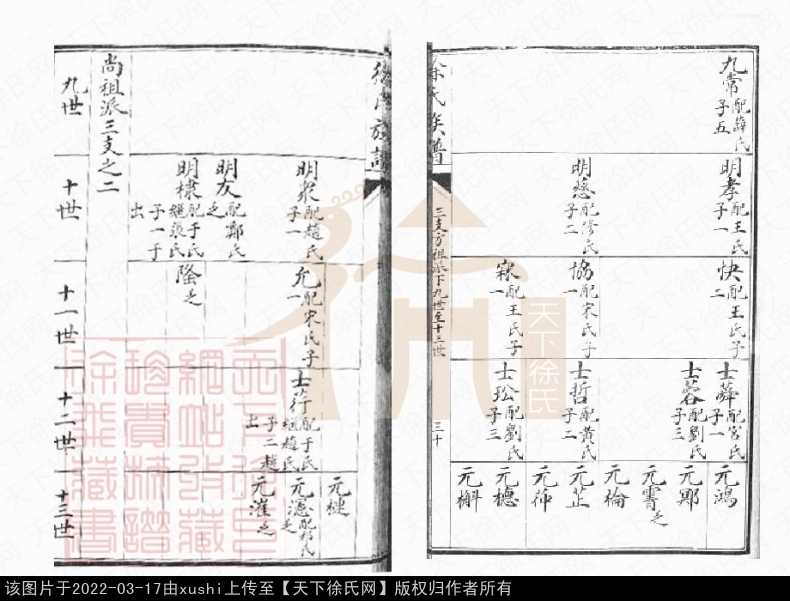 九常配薛氏子五
明孝配王氏子一
明慈配修氏子二
快配王氏子二
協配宋氏子一
寀配王氏子一
士蕣配宮氏子一
士蓉配劉氏子三
士哲配黄氏子二
士玜配劉氏子三
元鴻
元鄖
元霄乏
元棆
元芷
元仲
元槵
元槲
徐氏族譜
三支方祖派下九世至十三世
三十
徐氏族譜
明衆配趙氏子一
明友配鄭氏乏
明棣配于氏繼張氏子一于出
允配宋氏子一
隆乏
士荇配于氏繼趙氏子二趙出
元槤
元濦配杉氏乏
元漼乏
尚祖派三支之二
九世
十世
十一世
十二世
十三世
天下徐氏
天下徐氏網站珍貴族譜徐飛藏書
该图片于2022-03-17由xushi上传至【天下徐氏网】版权归作者所有